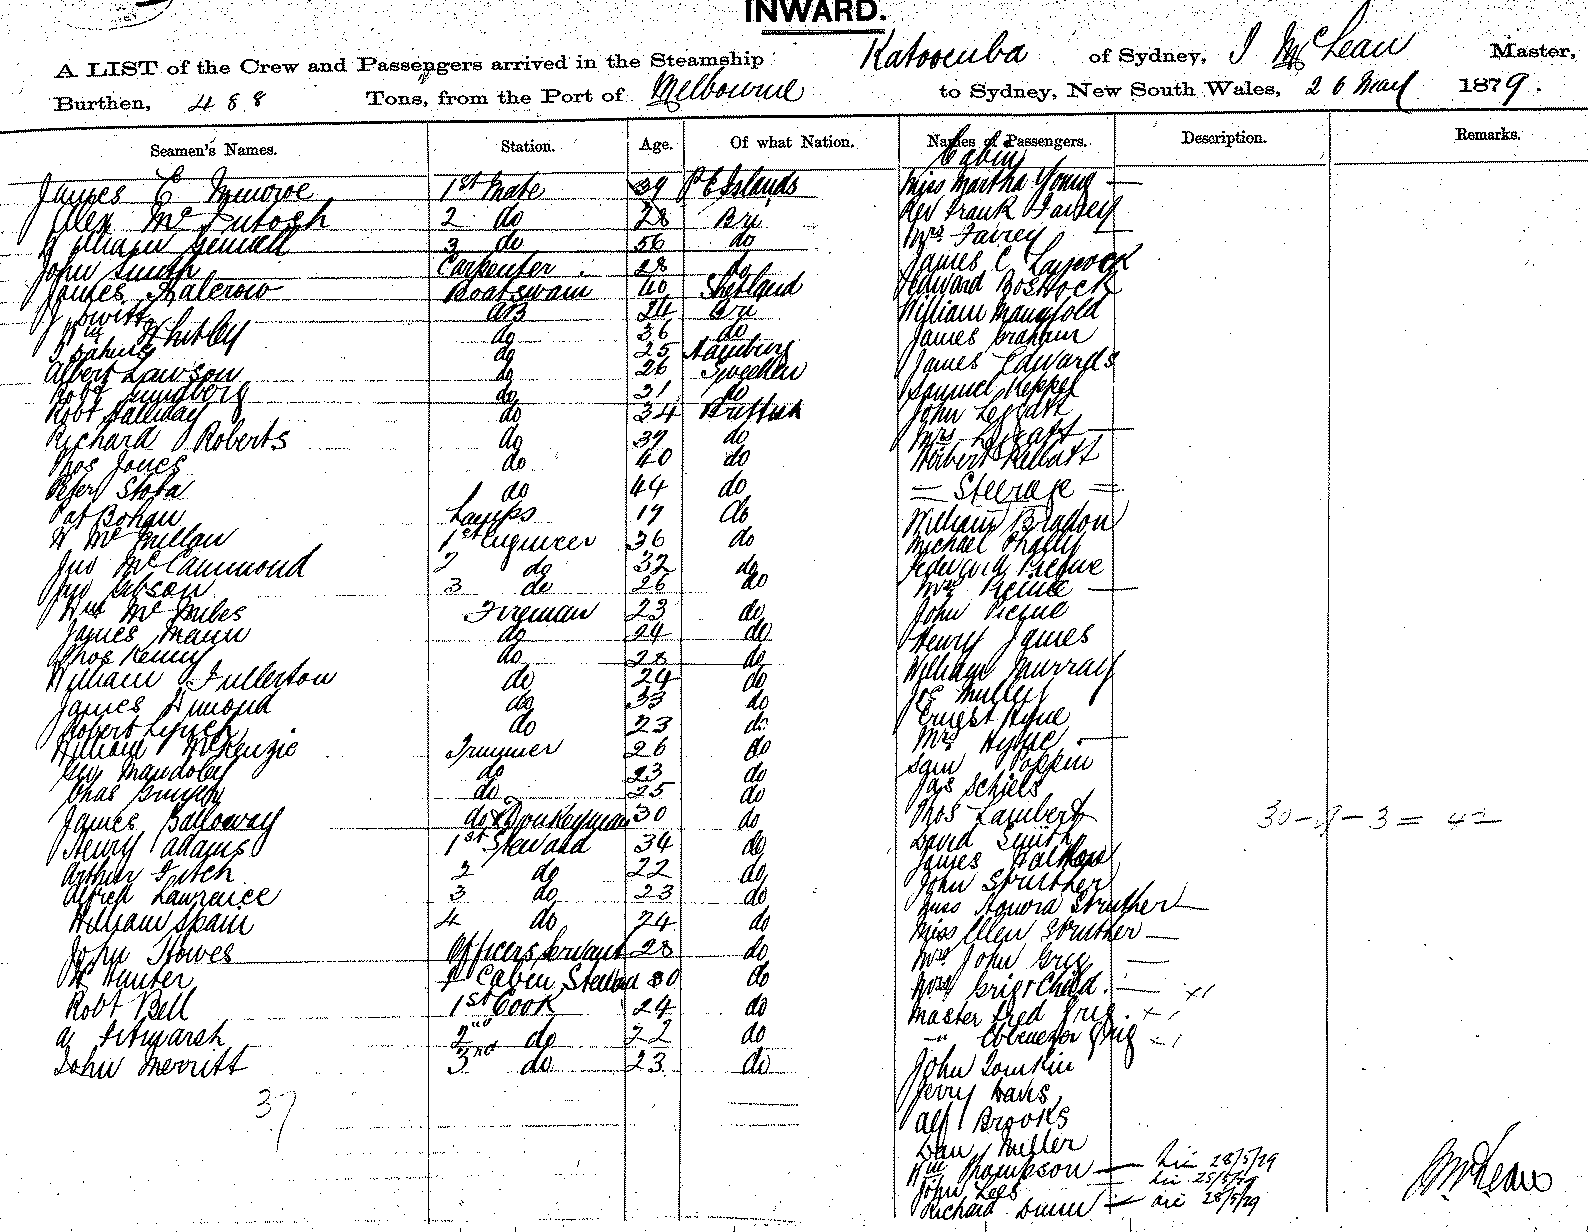 INWARD.
A LIST of the Crew and Passengers arrived in the Steamship Katoomba of Sydney, J McLean Master,
Burthen, 488 Tons, from the Port of Melbourne to Sydney, New South Wales, 26 May 1879.
Seamen's Names. Station. Age. Of what Nation. Names of Passengers. Description. Remarks.
Cabin
James C Munroe 1st Mate 39 P E Islands Miss Martha Young —
Alex McIntosh 2 do 28 Bri Rev Frank Fairey
William Gemall 3 do 56 do Mrs Fairey
John Smith Carpenter 28 do James C Laycock
James Halcrow Boatswain 40 Shetland Edward Bostock
J Jowitt AB 24 Bri William Manifold
Wm Whitley do 36 do James Graham
do 25 Hamburg James Edwards
Albert Lawson do 26 Sweeden Samuel Keppel
Robt Lundborg do 31 do John Leggatt
Robt Halliday do 34 British Mrs Leggatt —
Richard Roberts do 39 do Herbert Kellatt
Thos Jones do 40 do
Peter Stota do 44 do = Steerage =
Pat Bohan Lamps 19 do William Bradon
W McMillan 1st Engineer 36 do Michael
Jno McCammond 2 do 32 do Edward Pierne
Jno Gibson 3 do 26 do Mrs Pierne —
Wm McMiles Fireman 23 do John Pierne
James Mann do 24 do Henry James
Thos Kenny do 28 do William Murray
William Fullerton do 24 do Joe Mulley
James Dimond do 33 do Ernest Hyne
Robert Lynch do 23 do Mrs Hyne —
William McKenzie Trimmer 26 do Sam Poppin
Geo Mandoley do 23 do Jas Schiels
Chas do 25 do Thos Lambert
James Balloway do & Donkeyman 30 do David Smith 30-9-3 = 42
Henry Adams 1st Steward 34 do James
Arthur Fitch 2 do 22 do John Struther
Alfred Lawraice 3 do 23 do Miss Honora Struther —
William Spain 4 do 24 do Miss Ellen Struther —
John Howes Officers Servant 28 do Mr John Grig —
W Hunter F Cabin Steward 30 do Mrs Grig & Child. — x1
Robt Bell 1st Cook 24 do Master Fred Grig. x1
A Titmarsh 2nd do 22 do " Ebenezer Grig x1
John Merritt 3rd do 23 do John Tomkin
37 Jerry Davis
Alf Brooks
Dan Miller
Wm Thompson — 28/5/79
John Lees 28/5/79
Richard Dunn — 28/5/79
J McLean